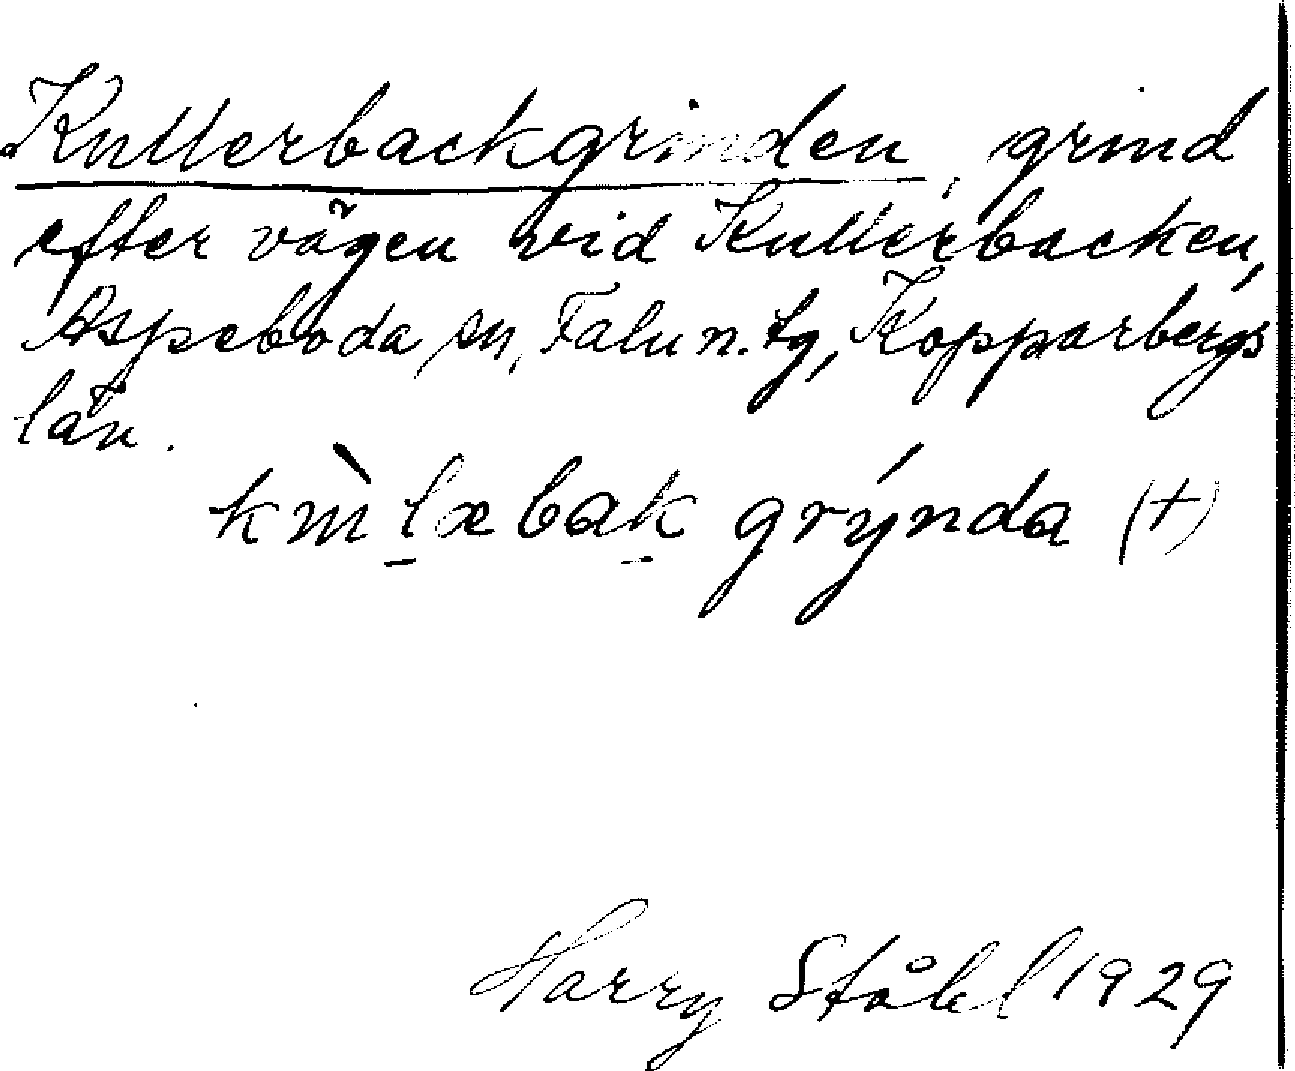 Kullerbackgrinden, grind
efter vägen vid Kullerbacken,
Aspeboda sn, Falu n. tg, Kopparbergs
län.
kɯ̀l̠æbak̠ grýnda (+)
Harry Ståhl 1929